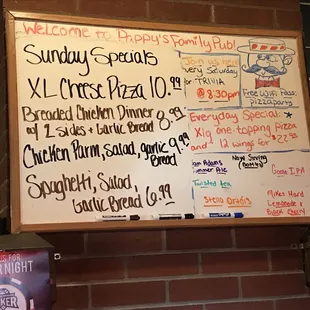 Welcome to Pappy's Family Pub!
Sunday Specials
XL Cheese Pizza 10.99
Breaded Chicken Dinner
w/ 2 sides + Garlic Bread 8.99
Chicken Parm, Salad, garlic Bread 9.99
Spaghetti, Salad,
Garlic Bread 6.99
Join us here
Every Saturday
for TRIVIA
@ 8:30pm
Free WiFi Pass:
pizzaparty
Everyday Special:
Xlg one-topping Pizza
and 12 wings for $22.99
Sam Adams
Summer Ale
Twisted Tea
Stella Artois
Now Serving
(Bottles)
Goose IPA
Mikes Hard
Lemonade &
Black Cherry
NIGHT